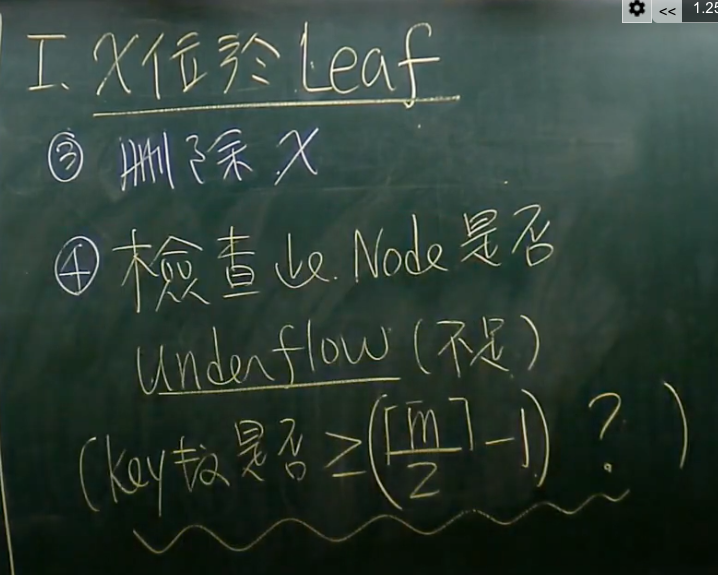 << 1.25
I. X位於 Leaf
③ 刪除 X
④ 檢查此 Node 是否
Underflow (不足)
(key數是否 ≥ (⌈m⌉/2 - 1) ? )